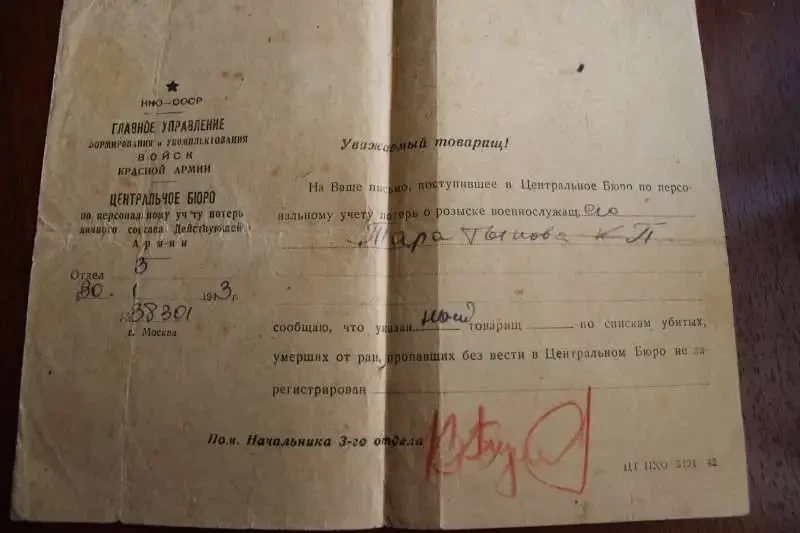 НКО-СССР
ГЛАВНОЕ УПРАВЛЕНИЕ
ФОРМИРОВАНИЯ и УКОМПЛЕКТОВАНИЯ
ВОЙСК
КРАСНОЙ АРМИИ
ЦЕНТРАЛЬНОЕ БЮРО
по персональному учету потерь
личного состава Действующей
Армии
Отдел 3
30. 1 1943 г.
№ 38301
г. Москва
Уважаемый товарищ!
На Ваше письмо, поступившее в Центральное Бюро по персо-
нальному учету потерь о розыске военнослужащ его
К П
сообщаю, что указан ный товарищ по спискам убитых,
умерших от ран, пропавших без вести в Центральном Бюро не за-
регистрирован
Пом. Начальника 3-го отдела
42